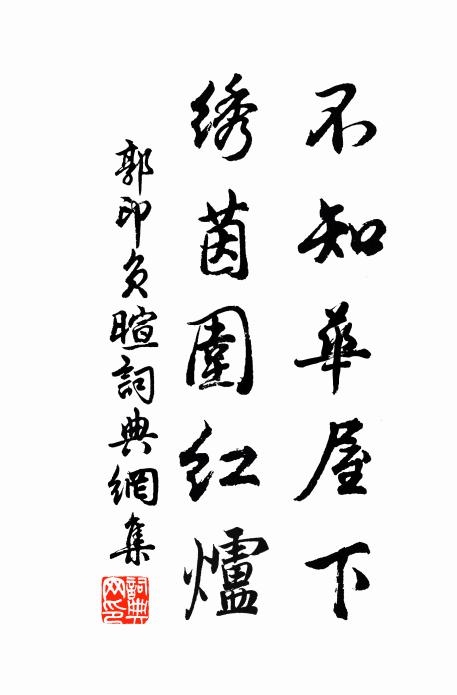 不知華屋下
綉茵圍紅爐
郭印負暄詞典網集
詞典网印